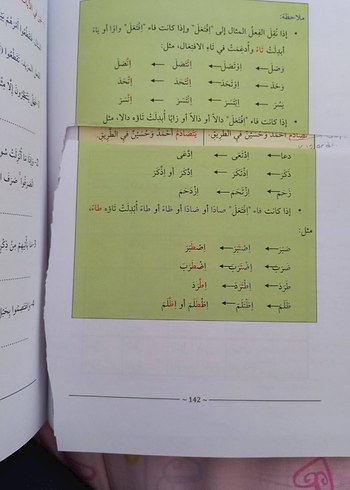 ملاحظة:
• إذا نُقِلَ الفِعلُ المثال إلى "اِفْتَعَلَ" وإذا كانت فاء "اِفْتَعَلَ" واوًا أو ياءً
أُبدِلَتْ تَاءً وأُدغِمَتْ في تَاء الافتِعَال، مثل:
وَصَلَ ← اِوْتَصَلَ ← اِتْتَصَلَ ← اِتَّصَلَ
وَحَدَ ← اِوْتَحَدَ ← اِتْتَحَدَ ← اِتَّحَدَ
يَسَرَ ← اِيْتَسَرَ ← اِتْتَسَرَ ← اِتَّسَرَ
• إذا كانت فاء "اِفْتَعَلَ" دالاً أو ذالاً أو زايًا أُبدِلَتْ تَاؤه دالا، مثل
أَحْمَدُ وَحُسَيْنٌ في الطَّرِيقِ يَتَصَادَمُ أَحْمَدُ وَحُسَيْنٌ في الطَّرِيقِ
دعا ← اِدْتَعَى ← اِدَّعَى
ذَكَرَ ← اِذْتَكَرَ ← اِذَّكَرَ أو اِدَّكَرَ
زَحَمَ ← اِزْتَحَمَ ← اِزْدَحَمَ
• إذا كانت فاء "اِفْتَعَلَ" صادًا أو ضادًا أو ظاءً أو طاءً أُبْدِلَتْ تَاؤه طاءً،
مثل:
صَبَرَ ← اِصْتَبَرَ ← اِصْطَبَرَ
ضَرَبَ ← اِضْتَرَبَ ← اِضْطَرَبَ
طَرَدَ ← اِطْتَرَدَ ← اِطَّرَدَ
ظَلَمَ ← اِظْتَلَمَ ← اِظْطَلَمَ أو اِظَّلَمَ
~ 142 ~